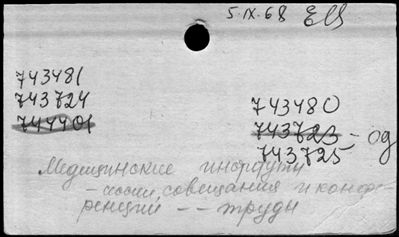 5.IX.68
743481
743724
744401
743480
743723
743725 - од
Медицинские институты
- сессии, совещания и конфе-
ренции -- труды